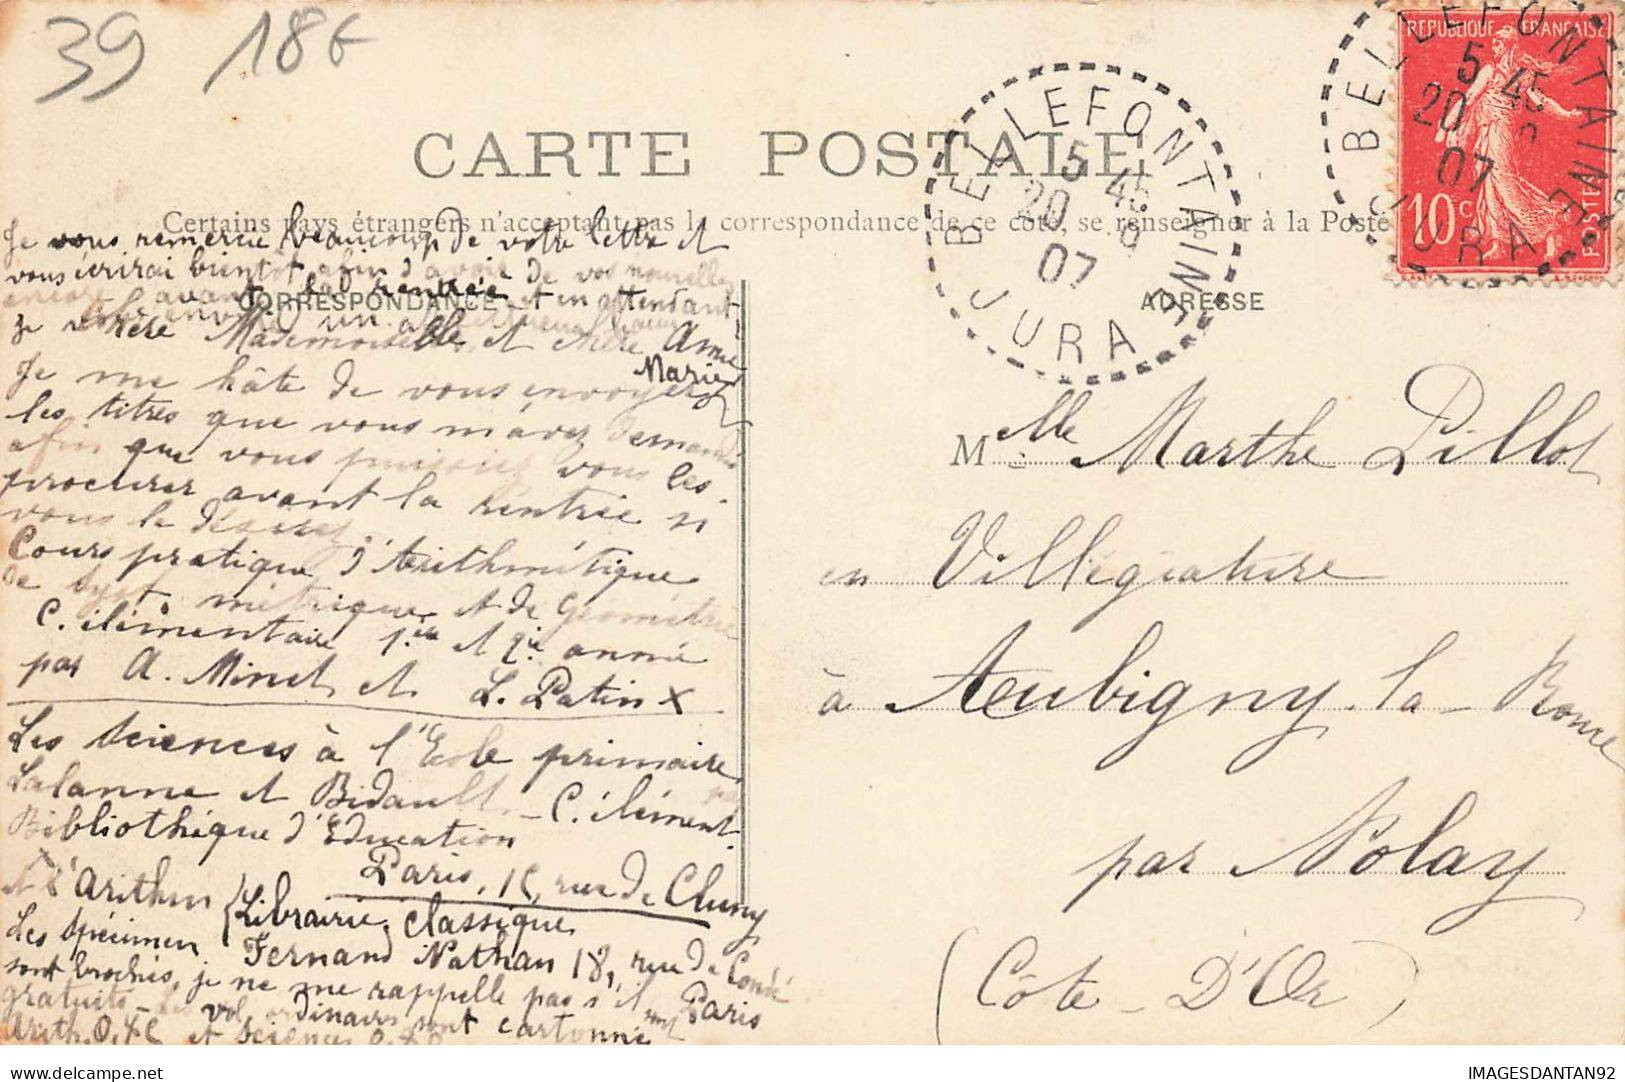 39 18€
CARTE POSTALE
Certains pays étrangers n'acceptant pas la correspondance de ce côté, se renseigner à la Poste
CORRESPONDANCE
ADRESSE
REPUBLIQUE FRANÇAISE
10c
POSTES
BELLEFONTAINE
5 45
20 8
07
JURA
BELLEFONTAINE
5 45
20
07
JURA
Je vous remercie beaucoup de votre lettre et
vous écrirai bientôt afin d'avoir de vos nouvelles
encore avant la rentrée et en attendant
je vous envoie un
Chère Mademoiselle et chère Amie
Marie
Je me hâte de vous envoyer
les titres que vous m'avez demandés
afin que vous puissiez vous les
procurer avant la rentrée si
vous le désirez.
Cours pratique d'Arithmétique
de Syst. métrique et de Géométrie
C. élémentaire 1.ère et 2.ie année
par A. Minet et L. Patin X
Les Sciences à l'Ecole primaire
par
Lalanne et Bidault - C. élément.
Bibliothèque d'Education
Paris, 15, rue de Cluny
et l'Arithm { Librairie classique
Fernand Nathan 18, rue de Condé
Paris
Les spécimen
sont brochés, je ne me rappelle pas s'il sont
gratuits - Les vol ordinaires sont cartonnés
Arith. 0,75 et Sciences
Melle Marthe Pillot
en Villégiature
à Aubigny-la-Ronce
par Nolay
(Côte-D'Or)
IMAGESDANTAN92